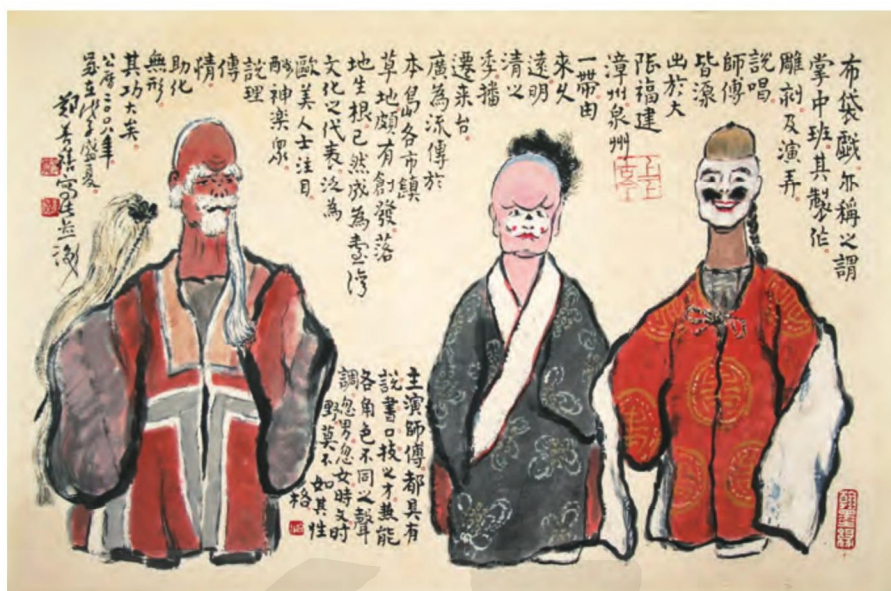 布袋戲亦稱之謂
掌中班其製作
雕刻及演弄
說唱
師傅
皆源
出於大
陸福建
漳州泉州
一帶由
來久
遠明
清之
季播
遷來台
廣為流傳於
本島各市鎮
草地頗有創發落
地生根已然成為臺灣
文化之代表泛為
歐美人士注目
酬神樂眾
說理
傳
情
助化
無形
其功大矣
公曆二〇〇八年
歲在戊子盛夏
鄭善禧寫生並識
主演師傅都具有
說書口技之才兼能
各角色不同之聲
調忽男忽女時文時
野莫不如其性
格